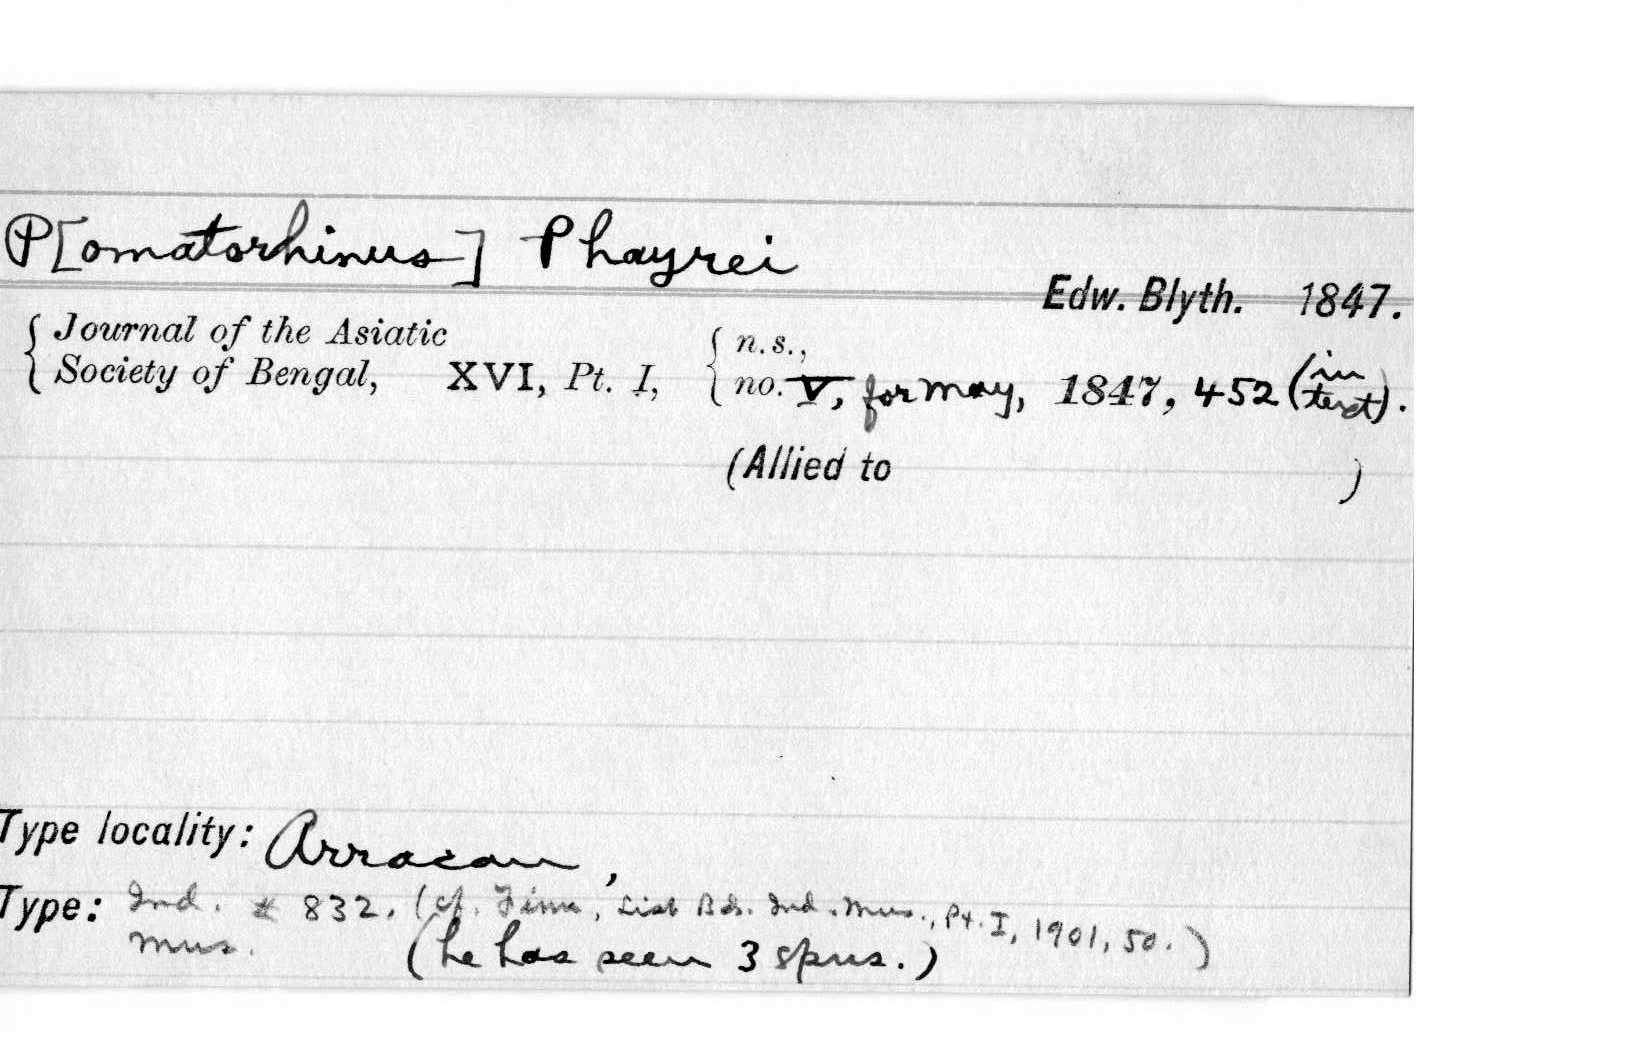 P[omatorhinus] Phayrei
Edw. Blyth. 1847.
{ Journal of the Asiatic Society of Bengal, XVI, Pt. I, { n.s., no. V, for May, 1847, 452 (in text).
(Allied to )
Type locality: Arracan,
Type: Ind. Mus. # 832. (cf. Finn, List Bds. Ind. Mus., Pt. I, 1901, 50.)
(he has seen 3 spms.)